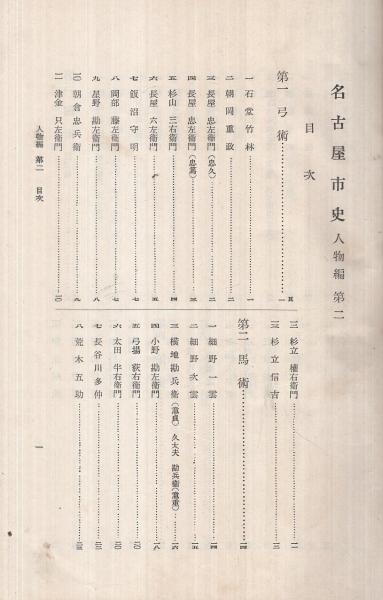 名古屋市史 人物編 第二
目次
頁
第一 弓術……一
一 石堂竹林……一
二 朝岡重政……二
三 長屋忠左衛門(忠久)……二
四 長屋忠左衛門(忠寛)……三
五 杉山三右衛門……四
六 長屋六左衛門……五
七 飯沼守明……七
八 岡部藤左衛門……七
九 星野勘左衛門……八
一〇 朝倉忠兵衛……九
一一 津金只左衛門……一〇
一二 杉立権右衛門……一二
一三 杉立信吉……一三
第二 馬術……一四
一 細野一雲……一四
二 細野次雲……一五
三 横地勘兵衛 久太夫 勘兵衛……一六
四 小野勘左衛門……一八
五 弓場荻右衛門……二〇
六 太田牛右衛門……二〇
七 長谷川多仲……
八 荒木五助……
人物編 第二 目次
一